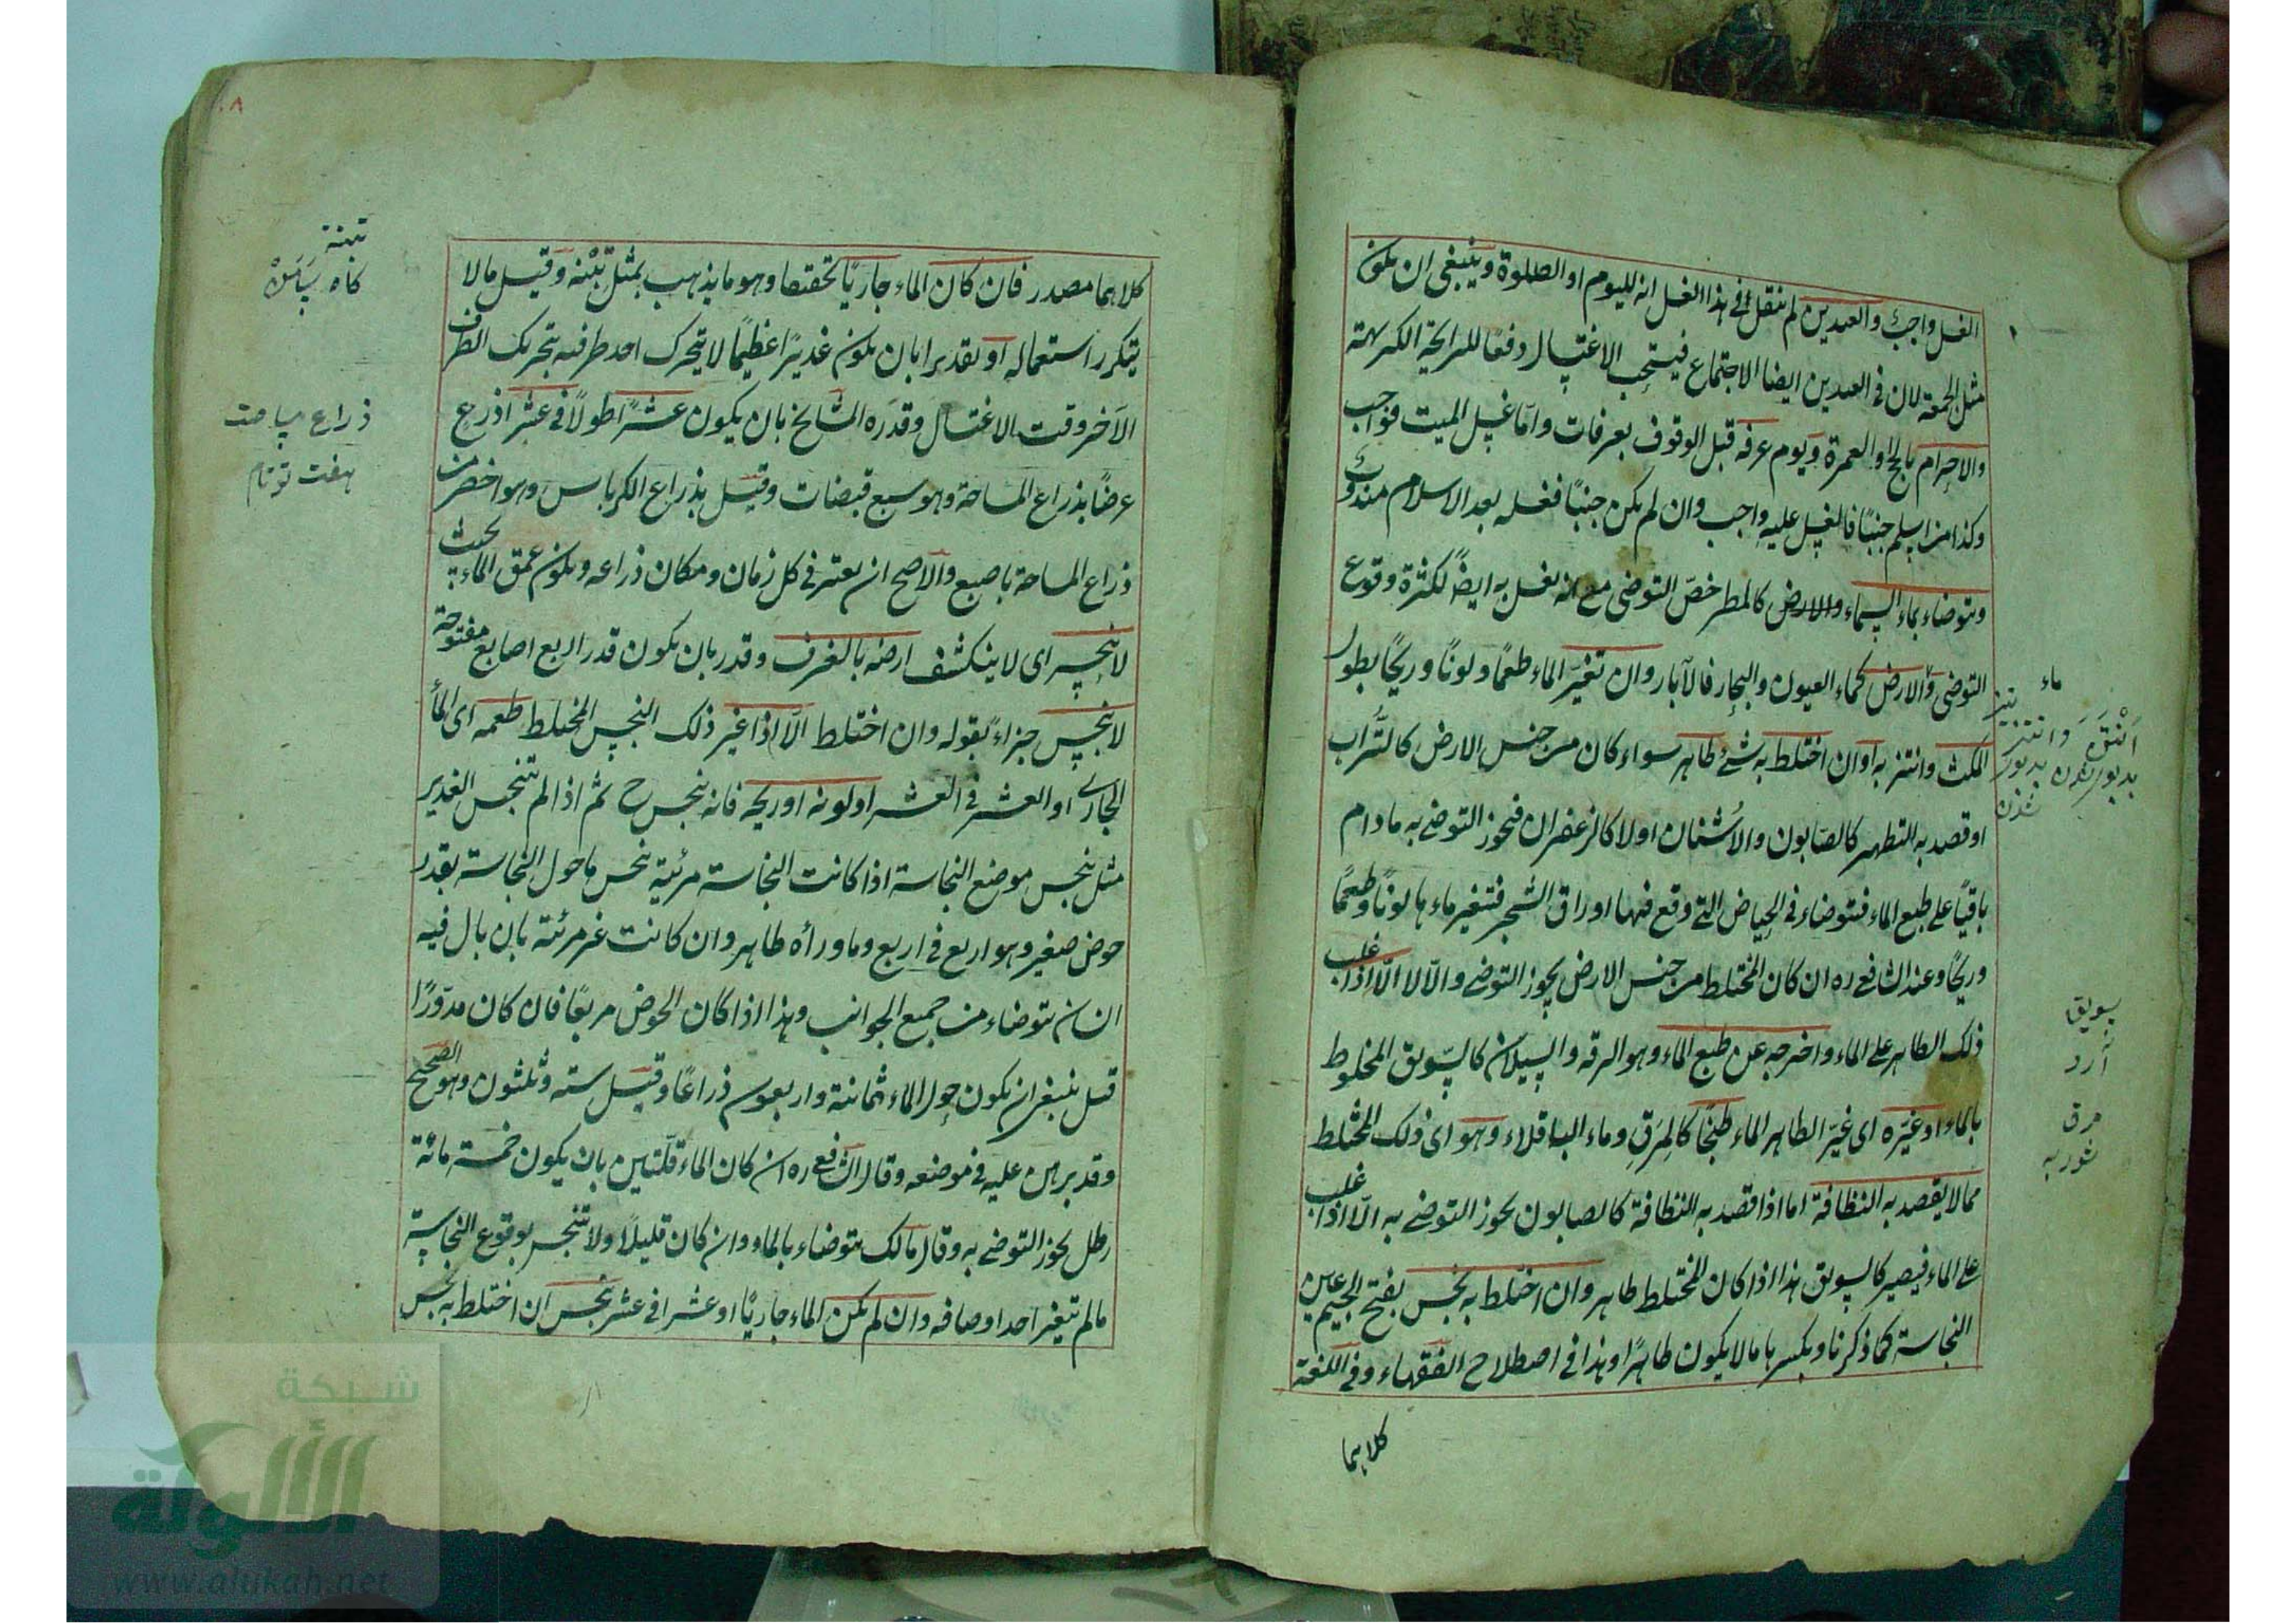 الغسل واجب والعيدين لم ينقل في هذا الغسل انه لليوم او الصلوة وينبغي ان يكون
مثل الجمعة لان في العيدين ايضا الاجتماع فيستحب الاغتسال دفعًا للرايحة الكريهة
والاحرام بالحج او العمرة ويوم عرفه قبل الوقوف بعرفات واما غسل الميت فواجب
وكذا من اسلم جنبًا فالغسل عليه واجب وان لم يكن جنبًا فغسله بعد الاسلام مندوب
ويتوضاء بماء السماء والارض كالمطر خصّ التوضي مع انه يغسل به ايضًا لكثرة وقوع
التوضي والارض كماء العيون والبحار فالآبار وان تغيّر الماء طعمًا ولونًا وريحًا بطول
المكث وانتنز به او ان اختلط به شئ طاهر سواء كان من جنس الارض كالتراب
او قصد به التطهر كالصابون والاشنان اولا كالزعفران فيجوز التوضي به مادام
باقيًا على طبع الماء فيتوضاء في الحياض التي وقع فيها اوراق الشجر فتغير ماءها لونًا وطعمًا
وريحًا وعند الشافعي ره ان كان المختلط من جنس الارض يجوز التوضي والا لا الا اذا غلب
ذلك الطاهر على الماء واخرجه عن طبع الماء وهو الرقه والسيلان كالسويق المخلوط
بالماء او غيّره اى غيّر الطاهر الماء طبخًا كالمرق وماء الباقلاء وهو اى ذلك المختلط
مما لا يقصد به النظافة اما اذا قصد به النظافة كالصابون يجوز التوضي به الّا اذا غلب
على الماء فيصير كالسويق هذا اذا كان المختلط طاهر وان اختلط به نجس بفتح الجيم عين
النجاسة كما ذكرنا وبكسرها ما لا يكون طاهرًا وهذا في اصطلاح الفقهاء وفي اللغة
كلاهما
ماء
بدبور
شدن
سويق
آرد
مرق
شوربه
٨
كلاهما مصدر فان كان الماء جاريًا تحقيقا وهو ما يذهب بمثل تبنة وقيل مالا
يتكرر استعماله او تقديرا بان يكون غديرًا عظيمًا لا يتحرك احد طرفيه بتحريك الطرف
الآخر وقت الاغتسال وقدره المشايخ بان يكون عشرًا طولًا في عشر اذرع
عرضًا بذراع المساحة وهو سبع قبضات وقيل بذراع الكرباس وهو اخصر من
ذراع المساحة باصبع والاصح ان يعتبر في كل زمان ومكان ذراعه ويكون عمق الماء بحيث
لا ينحسر اى لا ينكشف ارضه بالغرف وقدر بان يكون قدر اربع اصابع مفتوحة
لا ينجس جزاء لقوله وان اختلط الّا اذا غير ذلك النجس المختلط طعمه اى الماء
الجارى او العشر في العشر او لونه او ريحه فانه ينجس ح ثم اذا لم تنجس الغدير
مثل ينجس موضع النجاسة اذا كانت النجاسة مرئية ينجس ما حول النجاسة بقدر
حوض صغير وهو اربع في اربع وما ورآه طاهر وان كانت غير مرئية بان بال فيه
انسان يتوضاء من جميع الجوانب وهذا اذا كان الحوض مربعًا فان كان مدوّرًا
قيل ينبغى ان يكون حول الماء ثمانية واربعون ذراعًا وقيل ستة وثلثون وهو الصحيح
وقد برهن عليه في موضعه وقال الشافعي ره ان كان الماء قلّتين بان يكون خمسة مائة
رطل يجوز التوضي به وقال مالك يتوضاء بالماء وان كان قليلًا ولا تنجس بوقوع النجاسة
مالم يتغير احد اوصافه وان لم يكن الماء جاريًا او عشرا في عشر ينجس ان اختلط به نجس
تبنة
كاه
ذراع مساحت
هفت
شبكة
الألوكة
www.alukah.net